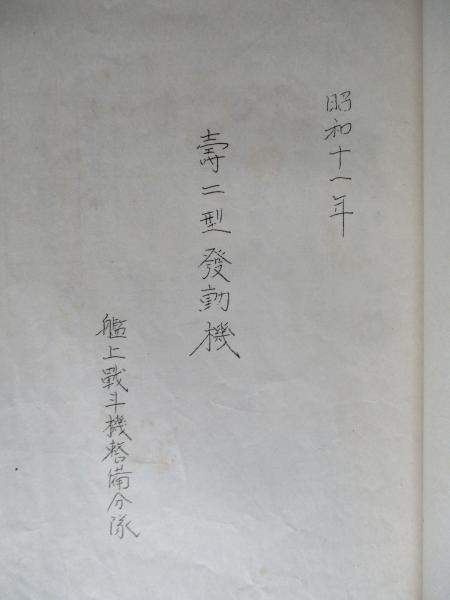 昭和十一年
壽二型發動機
艦上戰斗機整備分隊